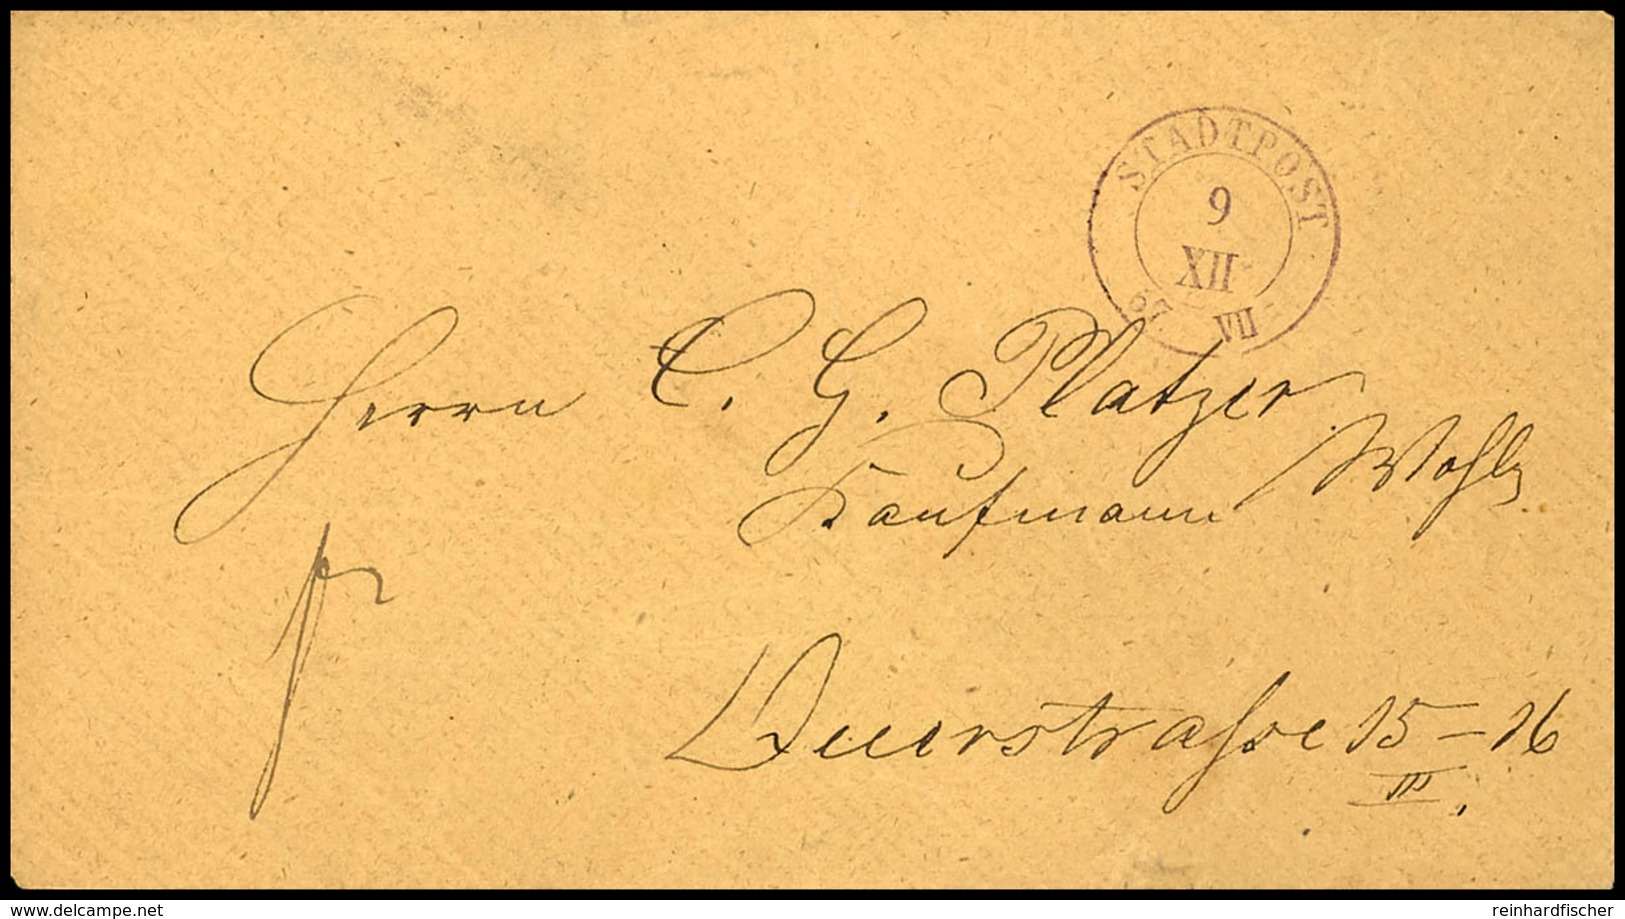 STADTPOST
9
XII
VII
Herrn C. G. Platzer
Kaufmann Wohlg
Querstraße 15-16
III,
www.delcampe.net
reinhardfischer